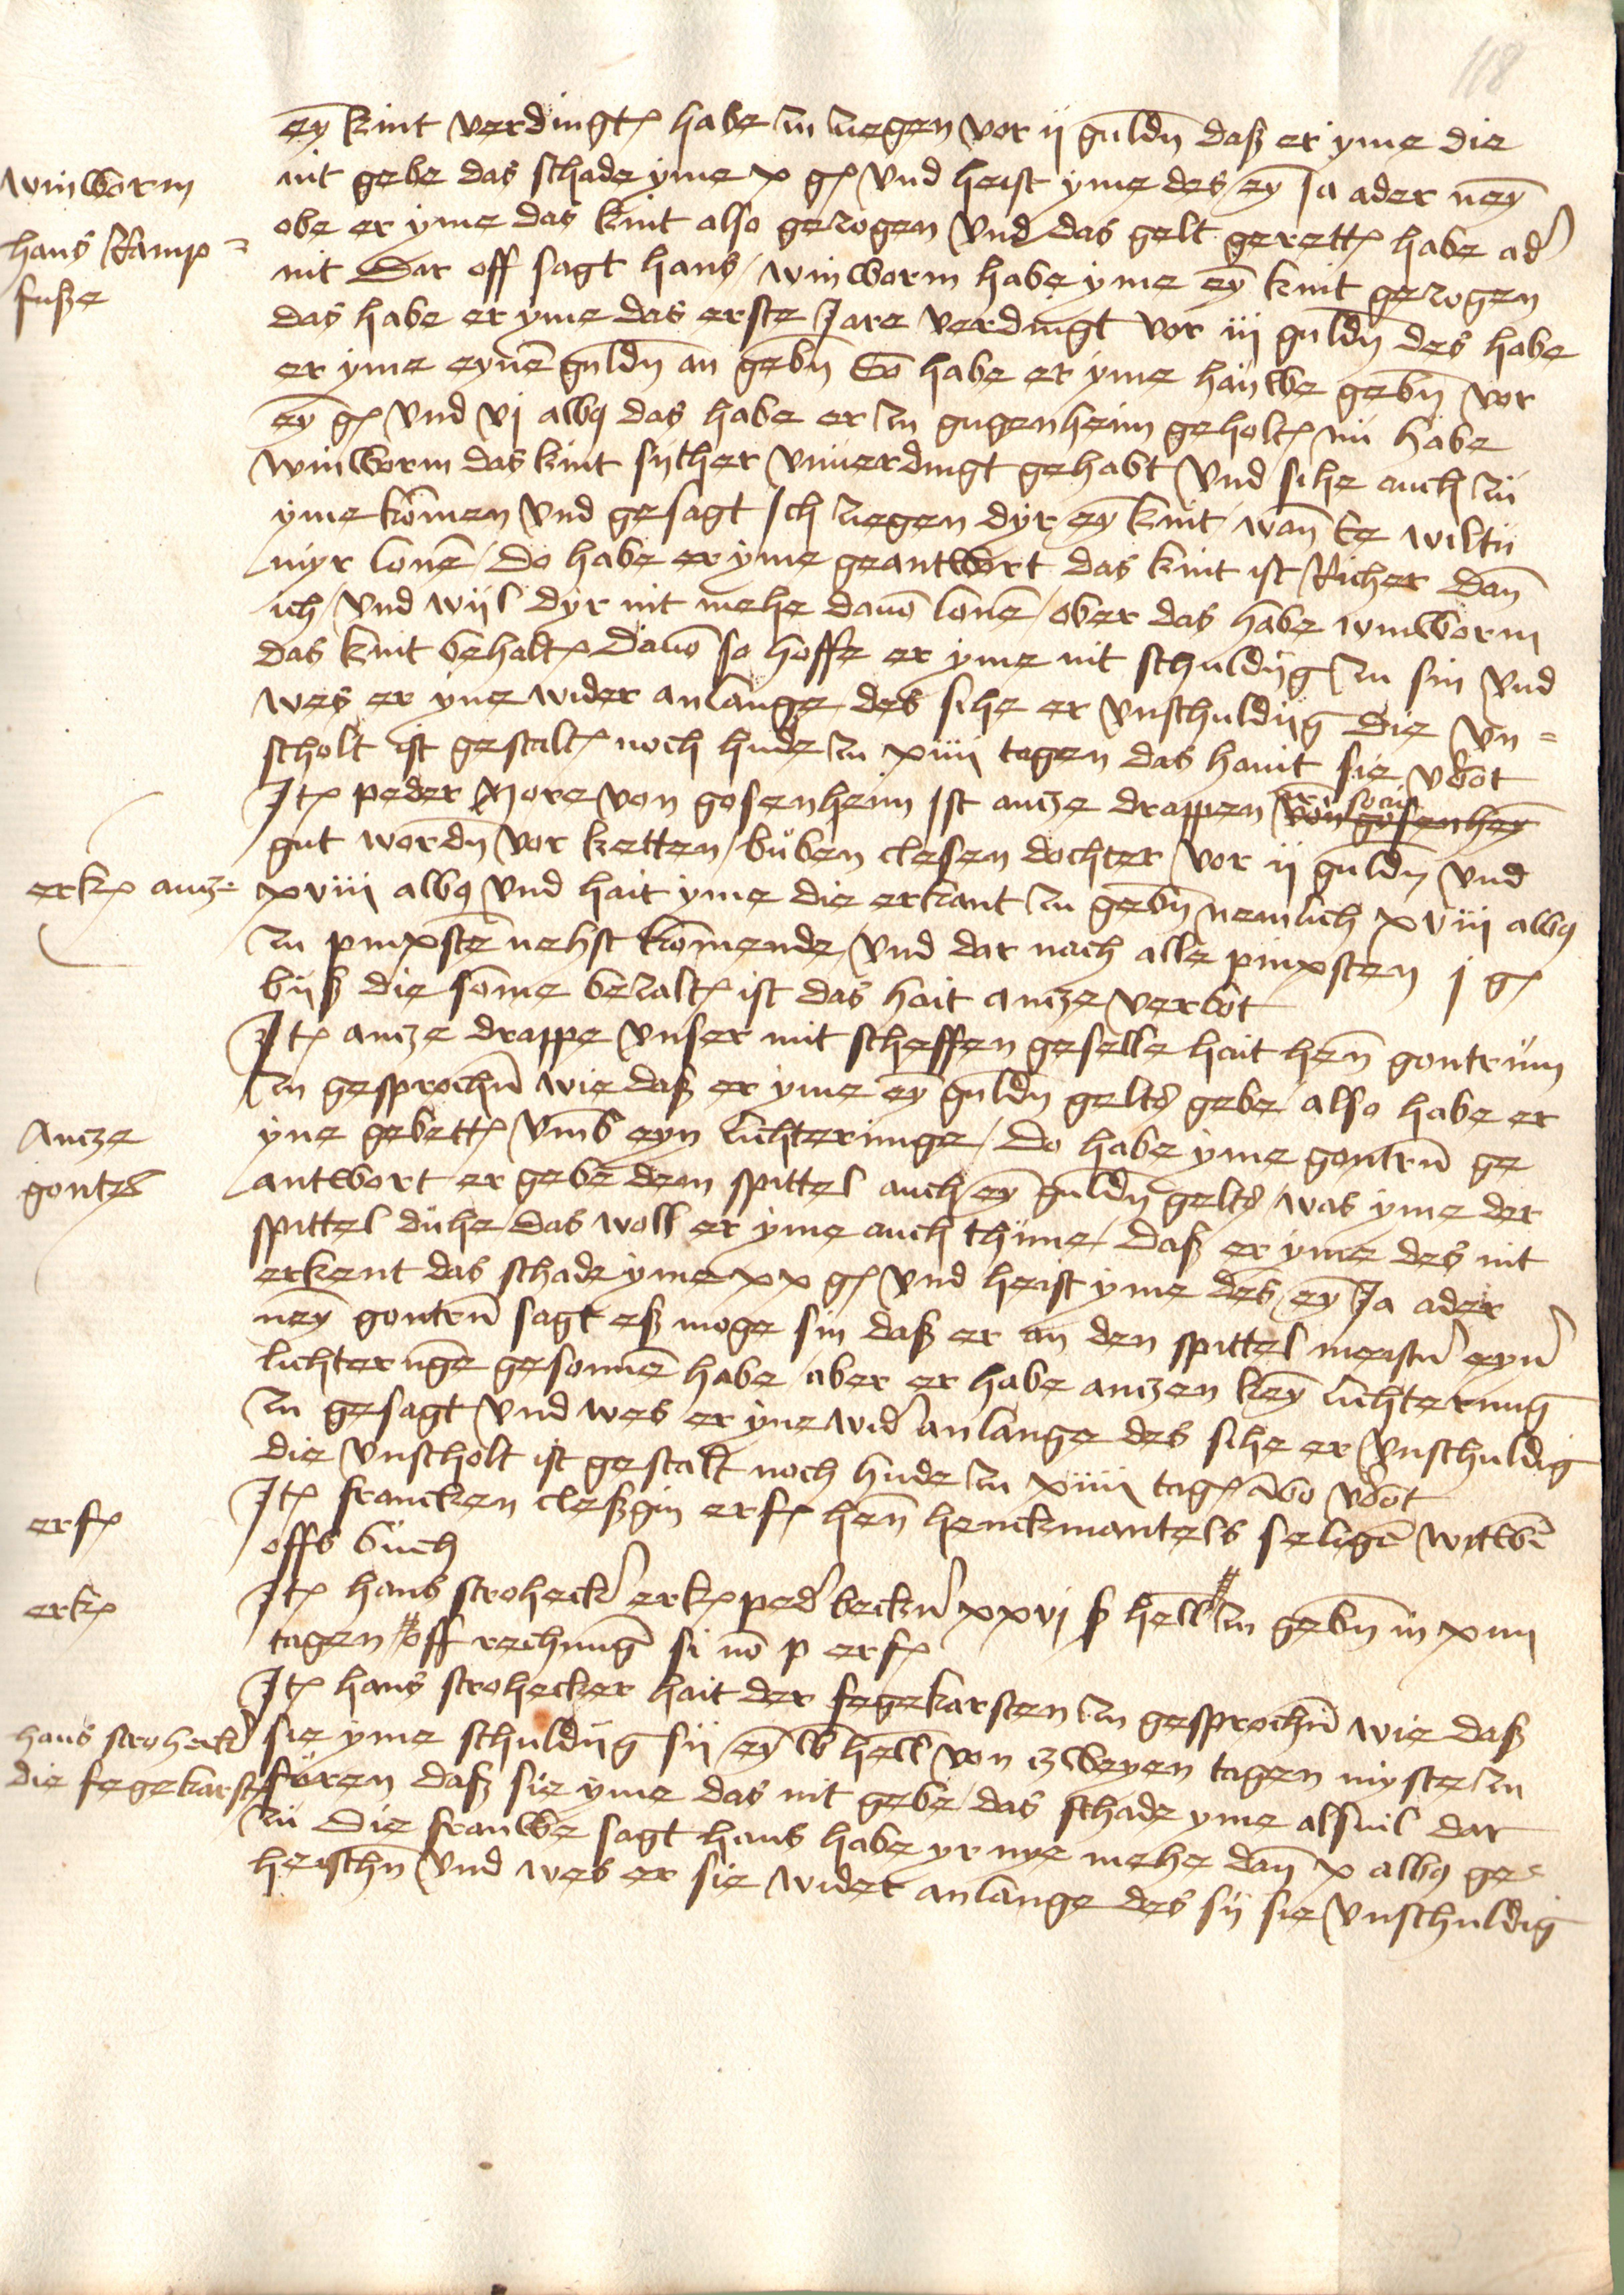 118
ey kint verdingt habe zu ziegen vor ij guldn daß er yme die
nit gebe das schade yme x gl vnd heist yme des ey Ja ader ney
winworm
obe er yme das kint also gezogen vnd das gelt gerett habe ad
hans Ramp=
nit Dar off sagt hans winworm habe yme ey kint gezogen
fusße
das habe er yme das erste Jare verdingt vor iij guldn des habe
er yme eynē guldn an gebn So habe er yme hauwe gebn vor
ey gl vnd vj alb das habe er zu gugenheim geholt nu habe
winworm das kint syther vnuerdingt gehabt vnd sihe auch zu
yme komen vnd gesagt Ich ziegen dyr ey kint wan ee wiltu
myr lonē do habe er yme geantwort das kint ist Richer dan
ich vnd wijl dyr nit mehe dauō lonē ober das habe winworm
das kint behalt dauō so hoffe er yme nit schuldijg zu sin vnd
wes er yne wider anlange des sihe er vnschuldijg Die vn=
scholt ist gestalt noch hude zu xiiij tagen das hant sie vbot
Itz peder More von gosenheim ist ancze drappen von gosenhey
gut wordn vor ketten buben clesen dochter vor ij guldn vnd
erk ancze xviij alb vnd hait yme die erkant zu gebn nemlich xviij alb
zu pinxstē nehst komende vnd dar nach alle pinxsten j gl
biß die some bezalt ist das hait ancze verbot
Itz ancze drappe vnser mit scheffen geselle hait hen gontrum
zu gesprochn wie daß er yme ey guldn gelts gebe also habe er
Ancze
yne gebett vmb eyn lichterunge do habe yme gontru ge
gontz
antwort er gebe dem spittel auch ey guldn gelts was yme der
spittel duhe das woll er yme auch thune daß er yme des nit
erkent das schade yme xx gl vnd heist yme des ey Ja ader
ney gontru sagt eß moge sin daß er an den spittel meistn eyn
lichterūge gesonnē habe aber er habe anczen key lichterung
zu gesagt vnd wes er yne wid anlange des sihe er vnschuldig
die vnscholt ist gestalt noch hude zu xiiij tag abo vbot
erf
Itz francken cleßgin erf hen henckmantels seligē witwē
offs buch
erk
Itz hans strohecker erk ped beckn xxvj ß hell zu gebn in xiiij
tagen off rechnung si nō p erf
Itz hans strohecker hait der fegekarsten zu gesprochn wie daß
hans strohecker
sie yme schuldijg sij ey lb hell von zweyen tagen myste zu
die fegekarste
füren daß sie yme das nit gebe das schade yme alsuil dar
zu Die frauwe sagt hans habe yr nye mehe dan x alb ge=
heischn vnd wes er sie wider anlange des sij sie vnschuldig